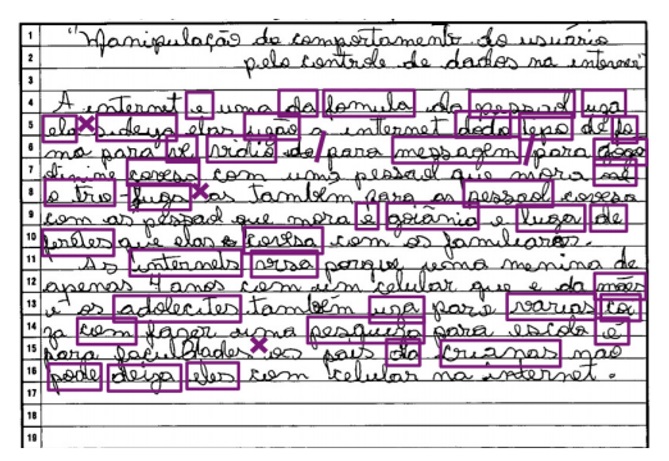 "Manipulação do comportamento do usuário
pelo controle de dados na internet"
A internet e uma da fomula da pessoal uza
elo sideiza elas uzão a internet dodo tipo de fo
ma para ve vidio do para messagem para
dinine covesa com uma pessoal que mora
o trio fuga as também para as pessoal covesa
com as pessoal que mora e goiânia e lugar de
pretes que elas e covesa com os familiares.
As internets vrsa porque uma menina de
apenas 4 anos com um celular que e da mães
e os adolecites também uza para varias coi
za com fazer uma pesquiza para escola e
para faculdades os pais da crianas não
pode deiza eles com celular na internet.